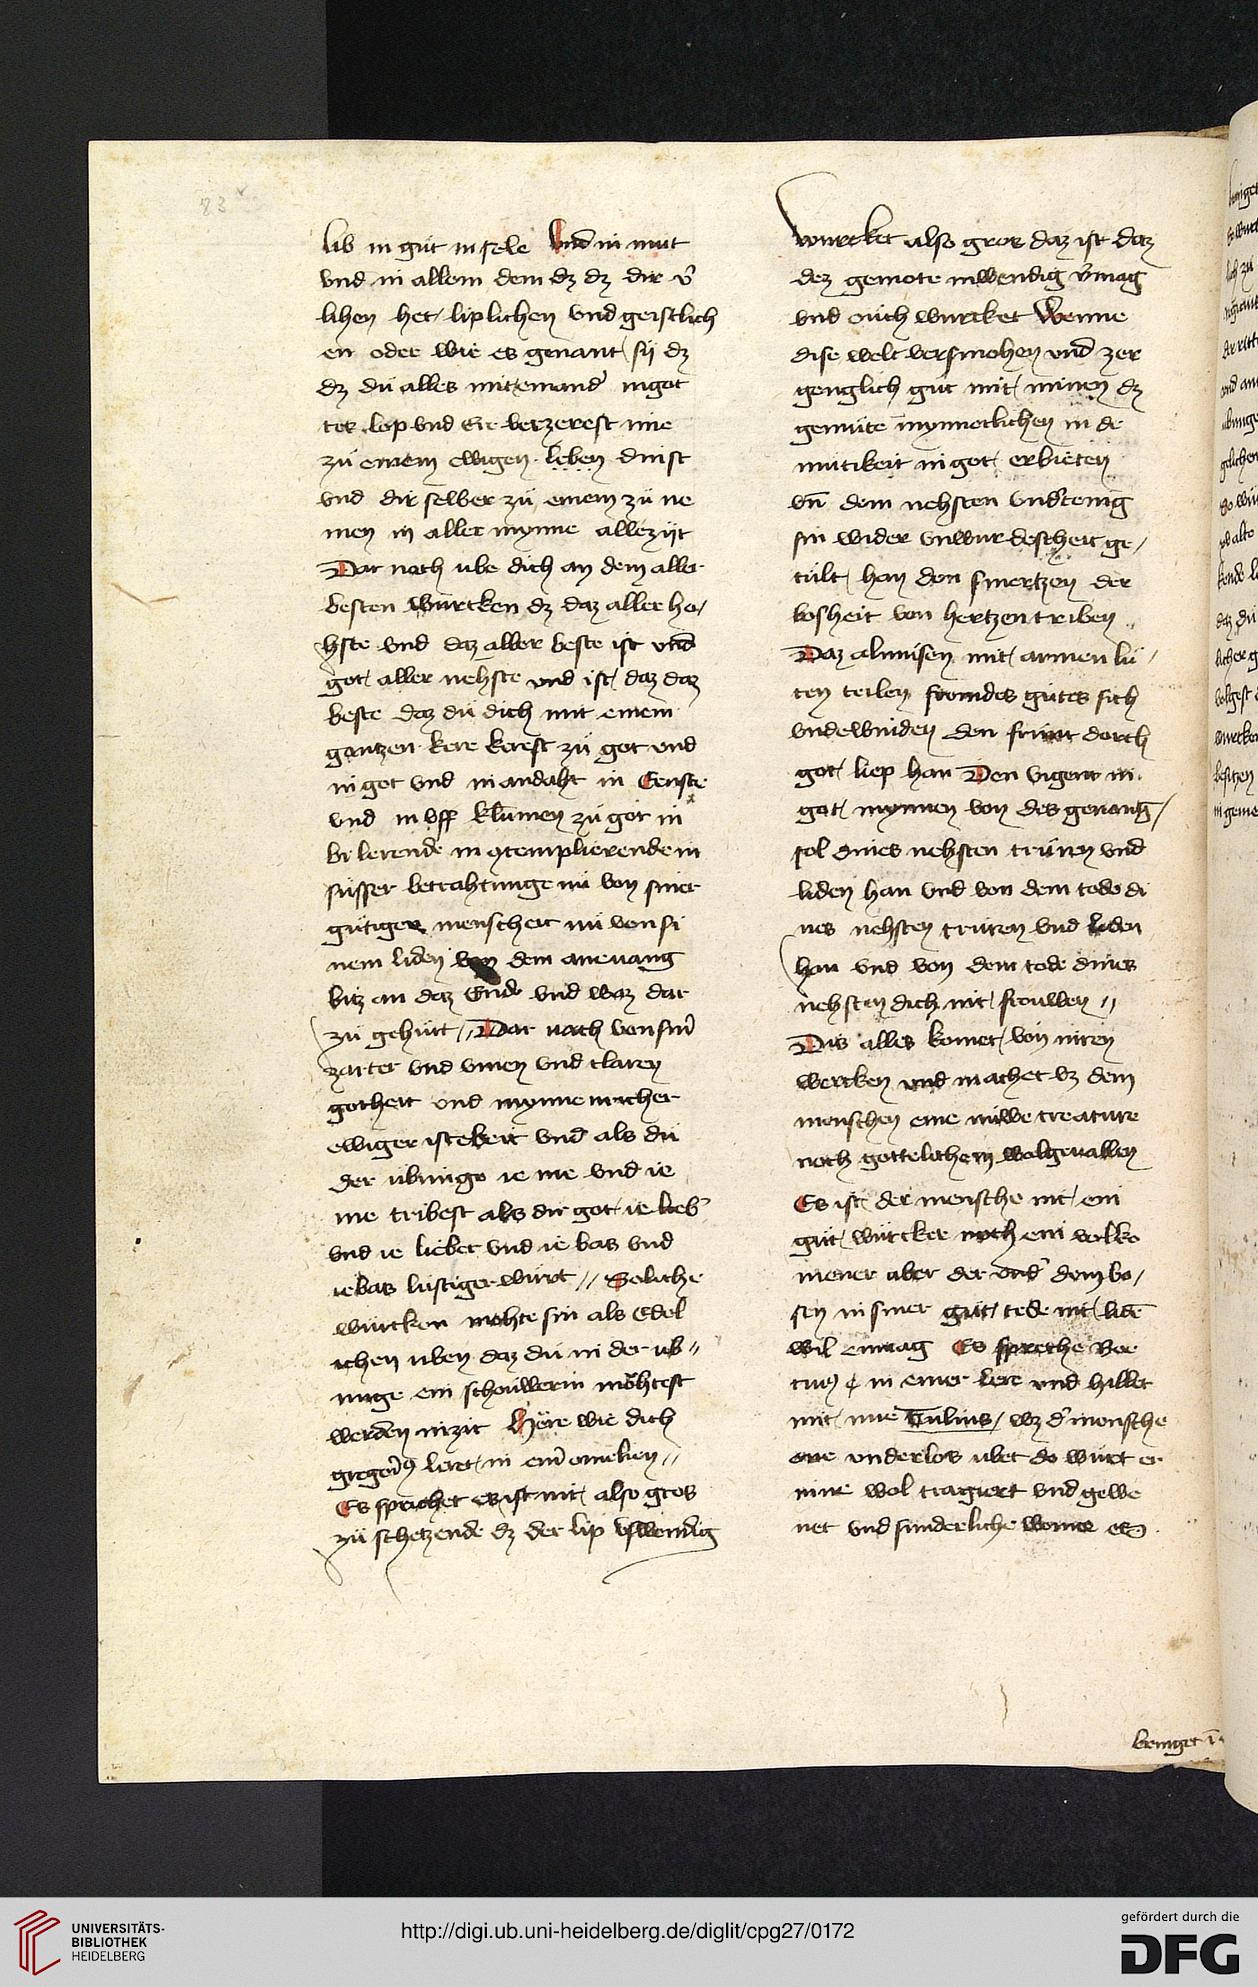 83
lib in gůt in sele Vnd in mut
vnd in allem dem dz dz dir v̾
lihen het liplichen vnd geistlich
en oder wie es genant sy dz
dz dü alles mit einand̾ in got
tes lop vnd Ere verzerest nüe
zü einem ewigen leben dinst
vnd dir selber zü einem zü ne
men in aller mynne allezyt
Dar noch übe dich an dem aller
besten würcken dz daz aller hö/
hste vnd daz aller beste ist vnd
got aller nehste vnd ist daz daz
beste daz dü dich mit einem
gantzen kere kerest zü got vnd
in got vnd in andaht in Ernste
vnd in vff klümen zü got in
bilerende in contemplierende in
süsser betrahtunge nü von siner
gütigen menscheit nü von si
nem liden von dem anevang
bitz an daz Ende vnd waz dar
zü gehürt // Dar noch von sin̾
zarter vnd vinen vnd claren
gotheit vnd mynnericher
ewiger istekeit vnd als dü
der übunge ie me vnd ie
me tribest als dir got ie lieb̾
vnd ie lieber vnd ie bas vnd
ie bas lustiger würt // Soliche
würcken mohte sin als Edel
ichen üben daz dü in der üb //
unge ein schouwerin möhtest
werden in zit Höre wie dich
gregori⁹ leret in ein̾ omelien //
Es sprichet es ist nit also gros
zü schetzende dz der lip vswendig
würcket also gros daz ist daz
dez gemöte inwendig v̾mag
vnd oüch würcket Wenne
dise welt versmohen vnd zer
genglich güt mit minen dz
gemüte mynneclichen in de
mütikeit in got erbieten
vn̄ dem nehsten vnd̾tenig
sin wider vnwurdescheit ge/
tült han den smertzen der
bosheit von hertzen triben
Daz almüsen mit armen lü/
ten teilen fromdes gütes sich
vndewinden den frünt dorch
got liep han Den vigent in
got mynnen von des genang̅/
sol dines nehsten trüren vnd
liden han vnd von dem tode di
nes nehsten trüren vnd liden
han vnd von dem tode dines
nehsten dich nit frouwen //
Dis alles komet von niren
wercken vnd machet vz dem
menschen eine nüwe creature
noch gottelichem wolgevallen
Es ist der mensche nit ein
güt würcker noch ein volko
mener aber der vnd̾ dem bö/
sen in siner güt tede nit lidē
wil enmag Es spreche Boe
cius in einer lere vnd hillet
mit ime Tulius / wz d̾ mensche
one vnderlos übet do würt er
inne wol tragiert vnd gewe
net vnd sünderliche wenne er
bringet ī
http://digi.ub.uni-heidelberg.de/diglit/cpg27/0172
UNIVERSITÄTS-
BIBLIOTHEK
HEIDELBERG
gefördert durch die
DFG